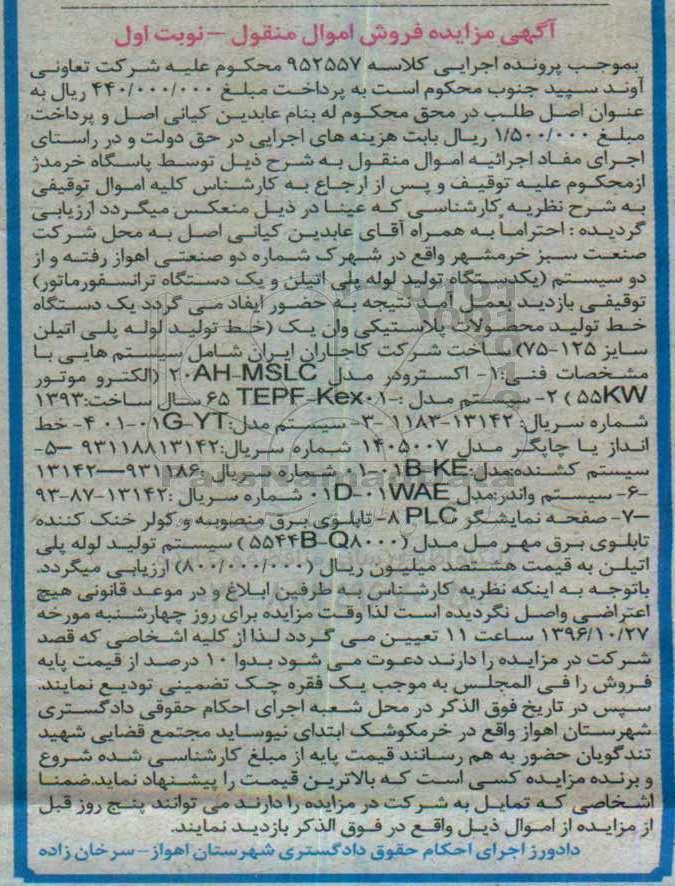 آگهی مزایده فروش اموال منقول – نوبت اول
بموجب پرونده اجرایی کلاسه ۹۵۲۵۵۷ محکوم علیه شرکت تعاونی
آوند سپید جنوب محکوم است به پرداخت مبلغ ۴۴۰/۰۰۰/۰۰۰ ریال به
عنوان اصل طلب در محق محکوم له بنام عابدین کیانی اصل و پرداخت
مبلغ ۱/۵۰۰/۰۰۰ ریال بابت هزینه های اجرایی در حق دولت و در راستای
اجرای مفاد اجرائیه اموال منقول به شرح ذیل توسط پاسگاه خرمدژ
ازمحکوم علیه توقیف و پس از ارجاع به کارشناس کلیه اموال توقیفی
به شرح نظریه کارشناسی که عینا در ذیل منعکس میگردد ارزیابی
گردیده : احتراماً به همراه آقای عابدین کیانی اصل به محل شرکت
صنعت سبز خرمشهر واقع در شهرک شماره دو صنعتی اهواز رفته و از
دو سیستم (یکدستگاه تولید لوله پلی اتیلن و یک دستگاه ترانسفورماتور)
توقیفی بازدید بعمل آمد نتیجه به حضور ایفاد می گردد یک دستگاه
خط تولید محصولات پلاستیکی وان یک (خط تولید لوله پلی اتیلن
سایز ۱۲۵-۷۵) ساخت شرکت کاجاران ایران شامل سیستم هایی با
مشخصات فنی:۱- اکسترودر مدل ۲۰AH-MSLC (الکترو موتور
۵۵KW ) ۲- سیستم مدل :-۰۱TEPF-Kex ۶۵ سال ساخت:۱۳۹۳
شماره سریال: ۱۳۱۴۲-۱۱۸۳ -۳- سیستم مدل:۰۱G-YT-۰۱ ۴- خط
انداز یا چاپگر مدل ۱۴۰۵۰۰۷ شماره سریال:۹۳۱۱۸۸۱۳۱۴۲ -۵-
سیستم کشنده:مدل:۰۱B-KE-۰۱ شماره سریال :۹۳۱۱۸۶-۱۳۱۴۲
-۶- سیستم واندر:مدل ۰۱D-۰۱WAE شماره سریال :۱۳۱۴۲-۸۷-۹۳
-۷- صفحه نمایشگر PLC ۸- تابلوی برق منصوبه و کولر خنک کننده
تابلوی برق مهر مل مدل (۵۵۴۴B-Q۸۰۰۰ ) سیستم تولید لوله پلی
اتیلن به قیمت هشتصد میلیون ریال (۸۰۰/۰۰۰/۰۰۰) ارزیابی میگردد.
باتوجه به اینکه نظریه کارشناس به طرفین ابلاغ و در موعد قانونی هیچ
اعتراضی واصل نگردیده است لذا وقت مزایده برای روز چهارشنبه مورخه
۱۳۹۶/۱۰/۲۷ ساعت ۱۱ تعیین می گردد لذا از کلیه اشخاصی که قصد
شرکت در مزایده را دارند دعوت می شود بدوا ۱۰ درصد از قیمت پایه
فروش را فی المجلس به موجب یک فقره چک تضمینی تودیع نمایند.
سپس در تاریخ فوق الذکر در محل شعبه اجرای احکام حقوقی دادگستری
شهرستان اهواز واقع در خرمکوشک ابتدای نیوساید مجتمع قضایی شهید
تندگویان حضور به هم رسانند قیمت پایه از مبلغ کارشناسی شده شروع
و برنده مزایده کسی است که بالاترین قیمت را پیشنهاد نماید.ضمنا
اشخاصی که تمایل به شرکت در مزایده را دارند می توانند پنج روز قبل
از مزایده از اموال ذیل واقع در فوق الذکر بازدید نمایند.
دادورز اجرای احکام حقوق دادگستری شهرستان اهواز-سرخان زاده